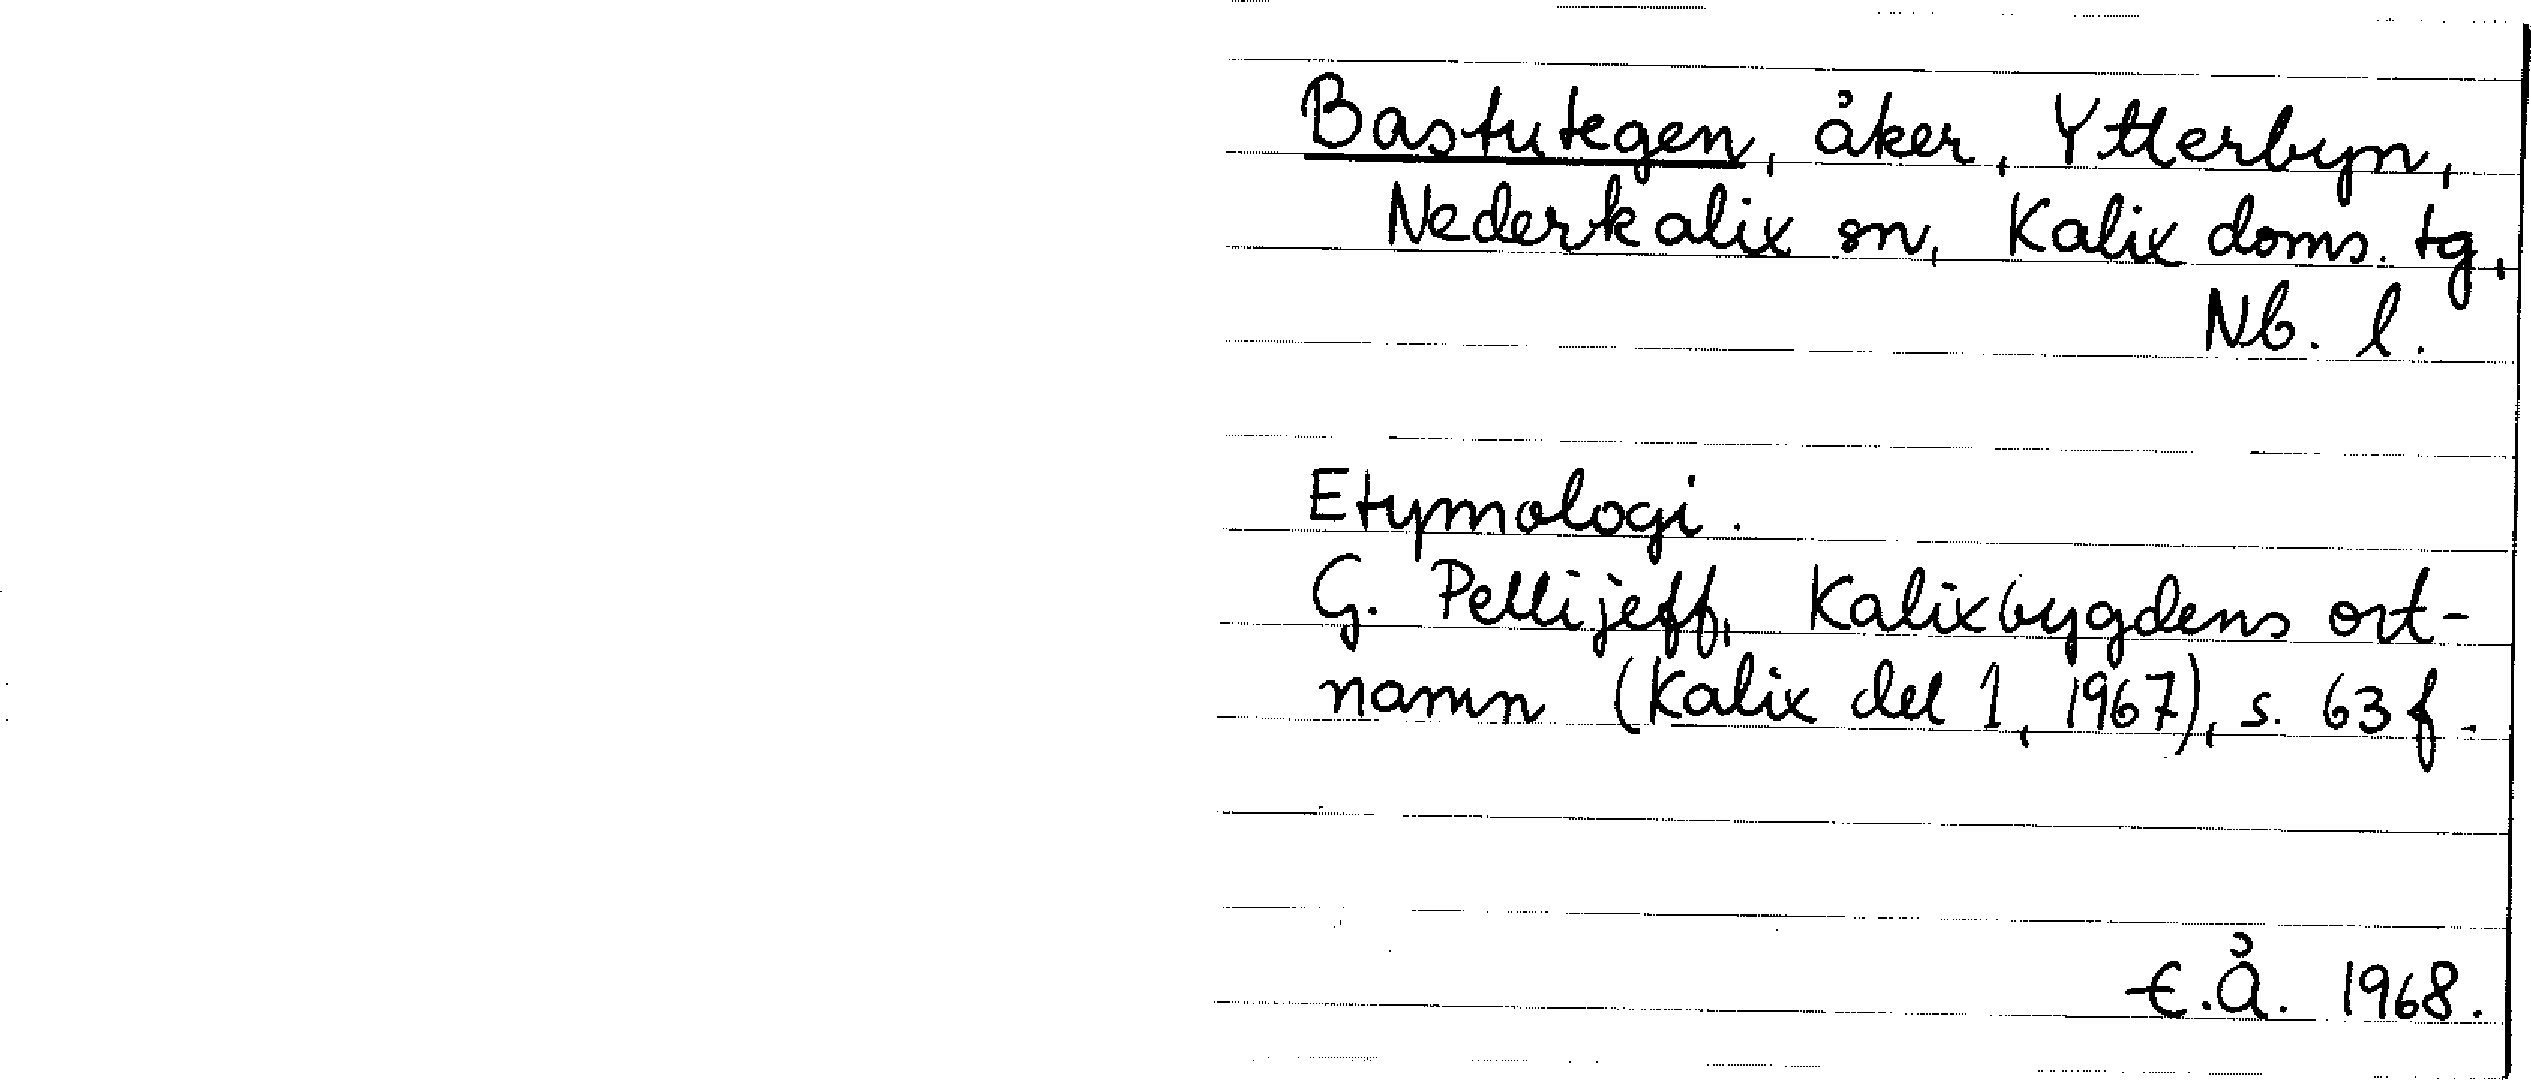 Bastutegen, åker, Ytterbyn,
Nederkalix sn, Kalix doms. tg,
Nb. l.
Etymologi.
G. Pellijeff, Kalixbygdens ort-
namn (Kalix del 1, 1967), s. 63 f.
E.Å. 1968.